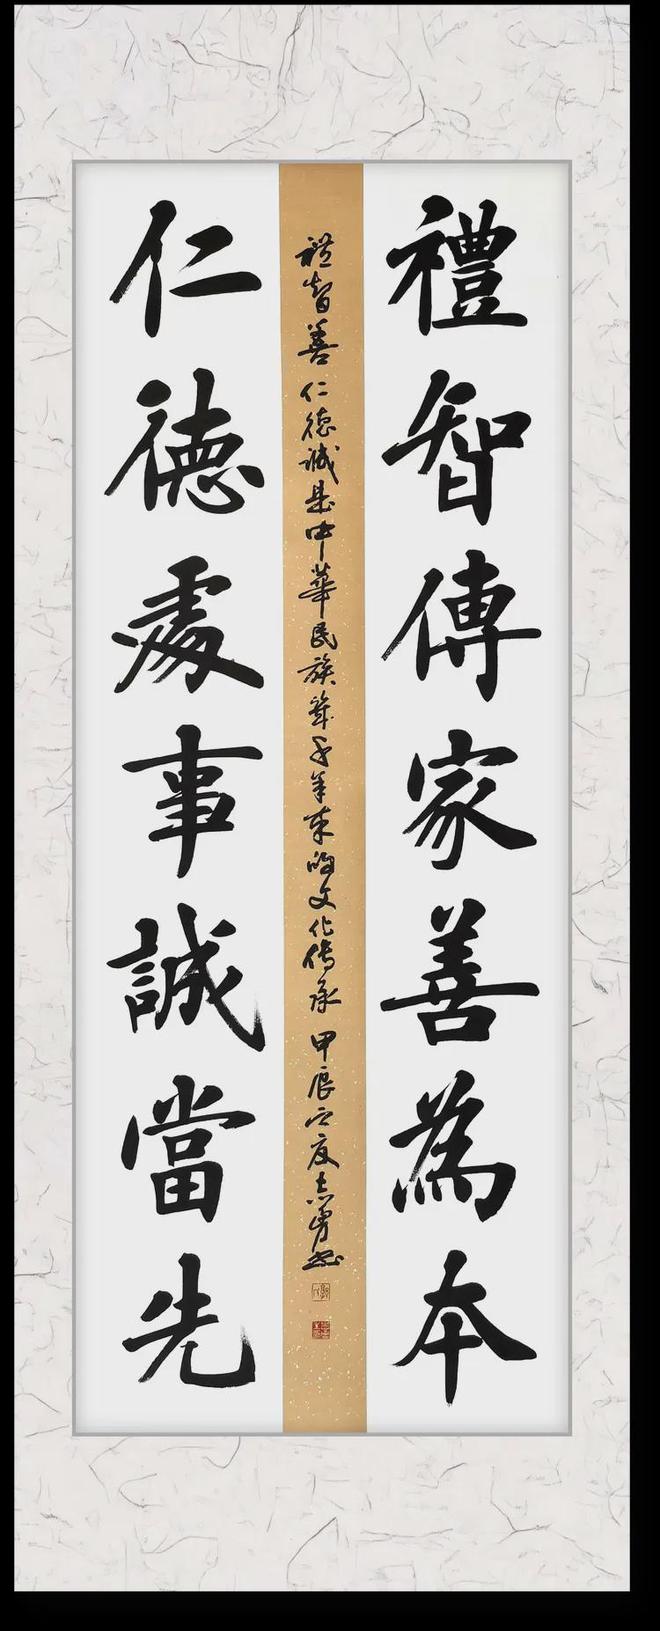 禮智傳家善為本
仁德處事誠當先
禮智善仁德誠是中華民族幾千年来的文化传承 甲辰之夏志勇書